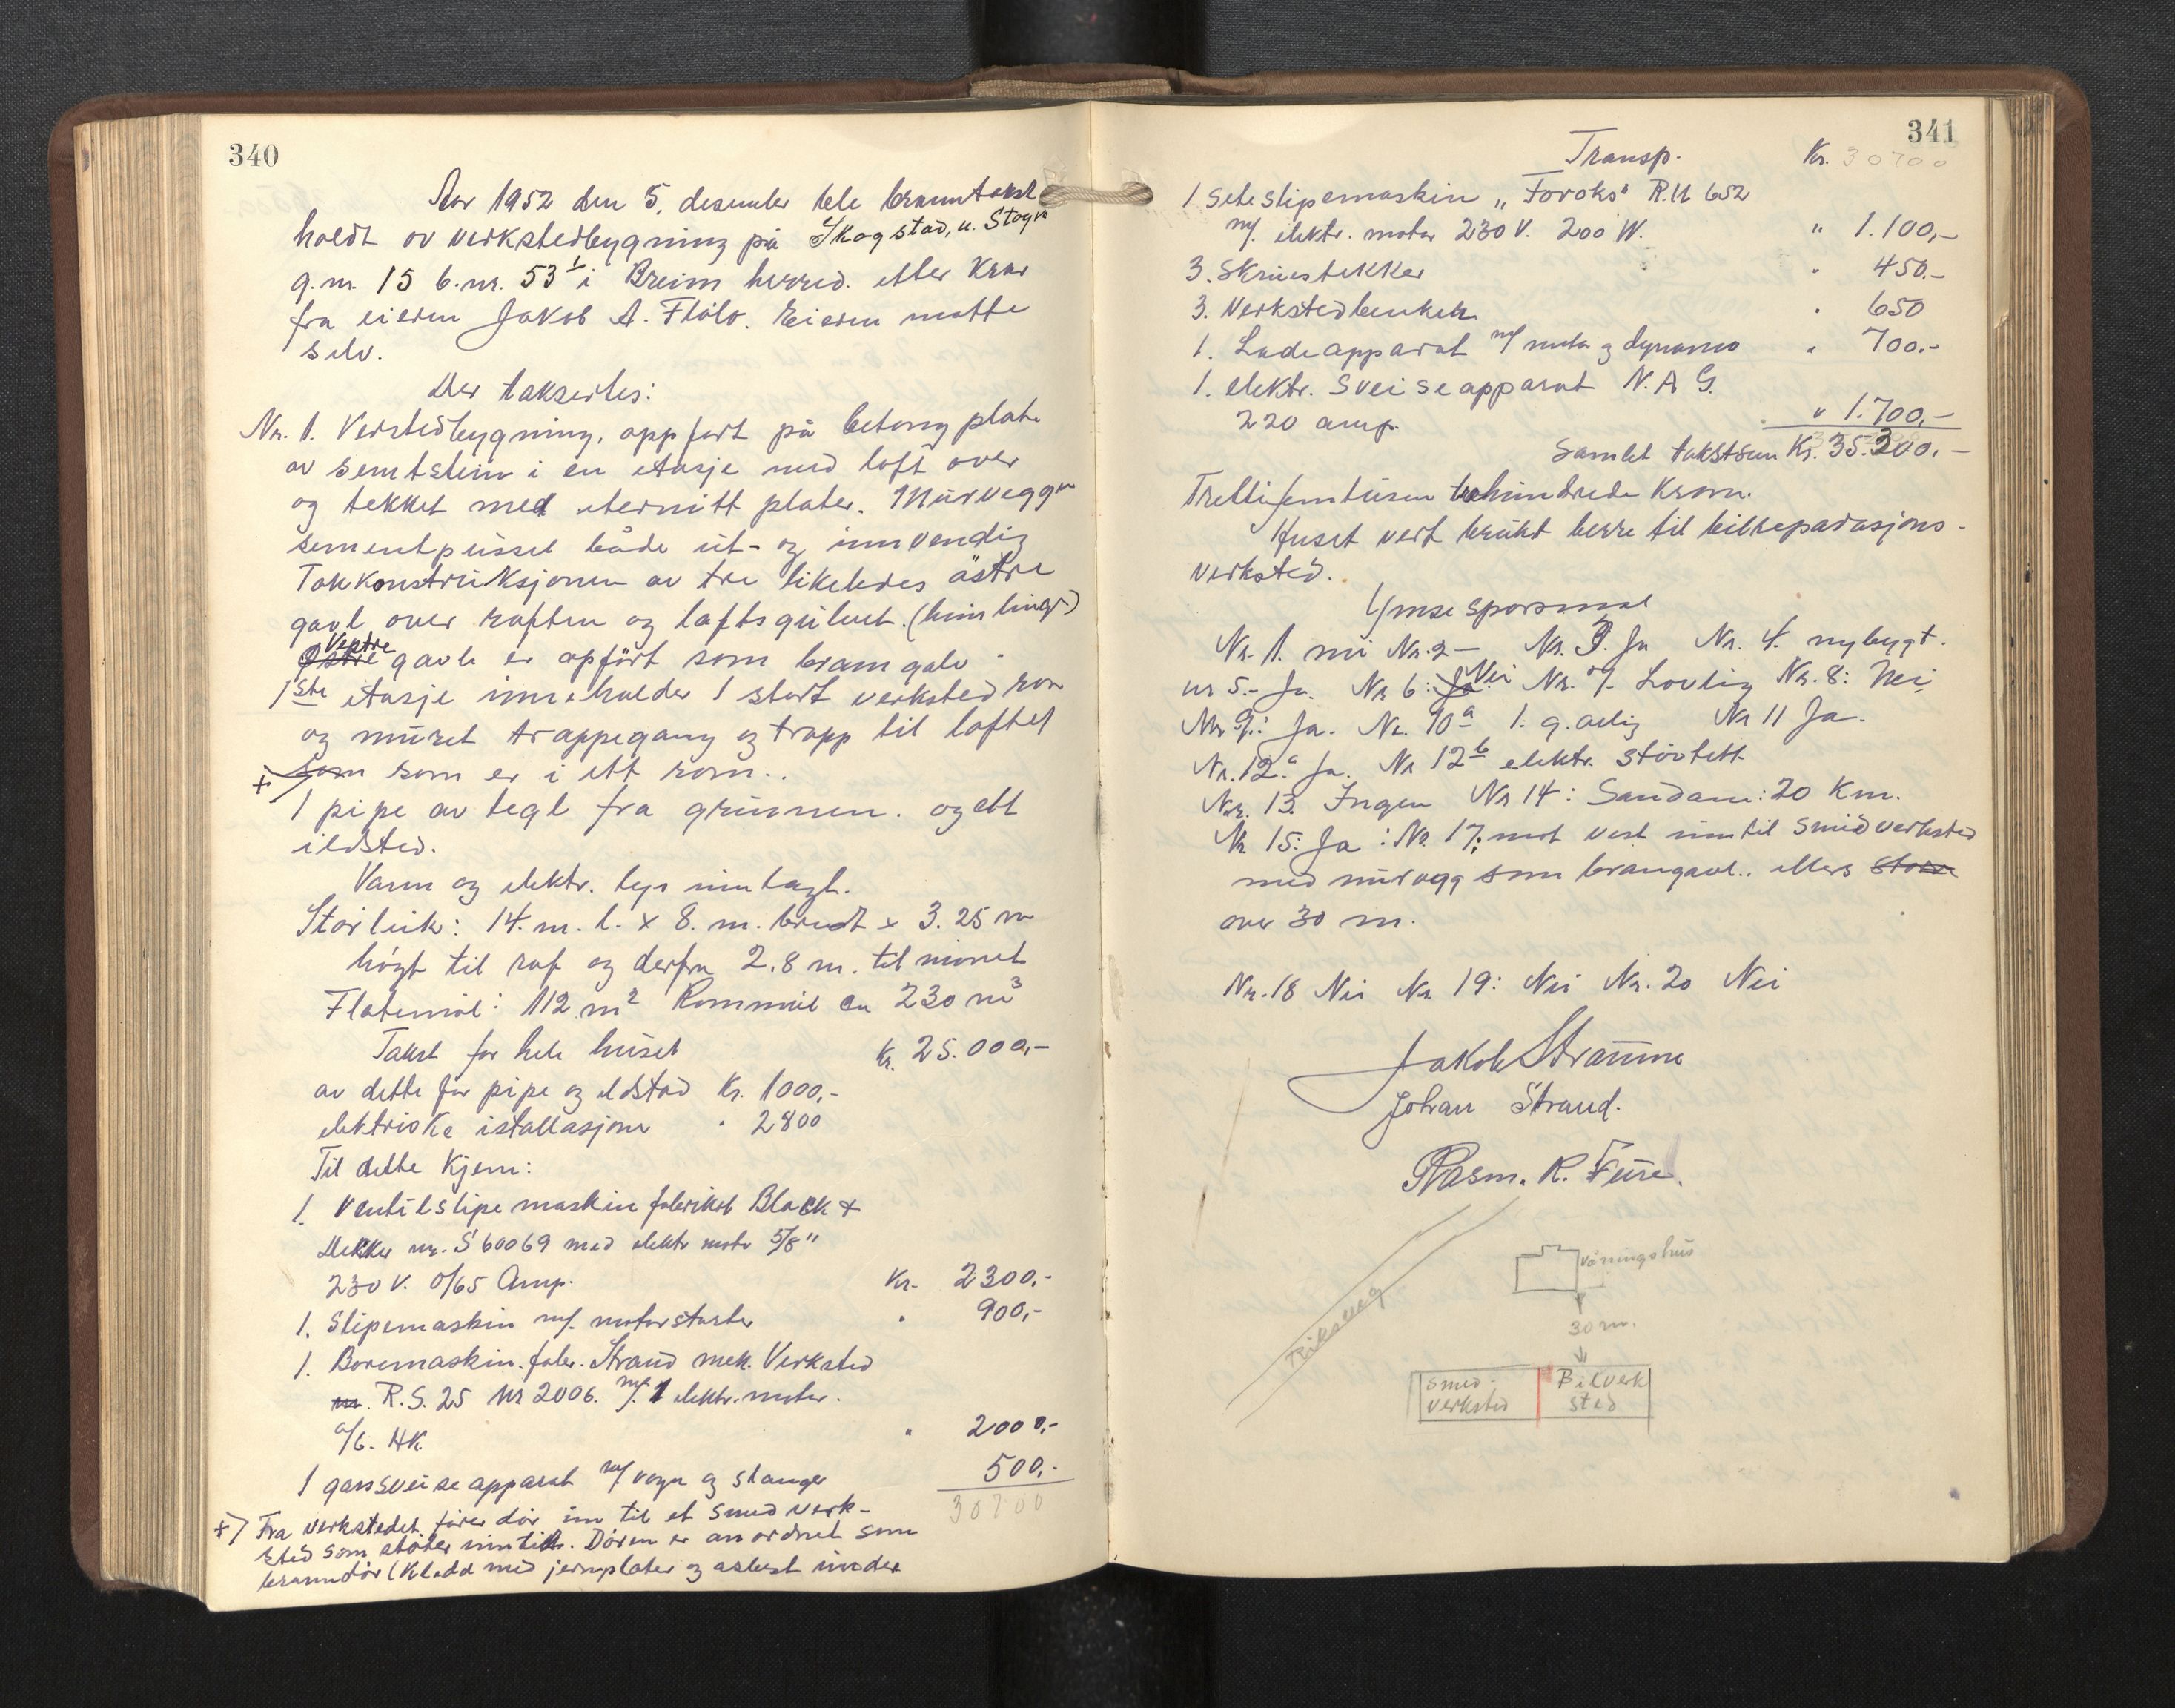 340
Aar 1952 den 5. desember ble branntakst
holdt av verkstedbygning på Skogstad, u. Stogvo
g.nr. 15 b.nr. 53 1 i Breim herred. etter krav
fra eieren Jakob A. Flølo. Eieren møtte
selv.
Der takserles:
Nr. 1. Verstedbygning, oppført på betong plate
av semtstein i en etasje med loft over
og tekket med eternitt plater. Murveggn
sementpusset både ut- og innvendig
Takkonstruksjonen av tre likeledes østre
gavl over raften og loftsgulvet. (himlinge)
Østre Vestre gavle er opført som branngalv.
1ste etasje inneholder 1 stort verksted rom
og muret trappegang og trapp til loftet
+ som som er i ett rom..
1 pipe av tegl fra grunnen. og ett
ildsted.
Vann og elektr. lys inntagt.
Storleik: 14. m. l. x 8. m. bredt x 3.25 m
høgt til raf og derfra 2.8 m. til mønet
Flatemål: 112 m2 Rommål ca 230 m3
Takst for hele huset Kr. 25.000,-
av dette for pipe og eldstad Kr. 1000,-
elektriske istallasjone " 2800
Til dette Kjem:
1. Ventilslipemaskin fabrikat Black +
Dekker nr. S 60069 med elektr motor 5/8"
230 V. 0/65 Amp. Kr. 2300,-
1. Slipemaskin m/. motorstarter " 900,-
1. Boremaskin. fabr. Strand mek. Verksted
nr. R.S. 25 Nr 2006. m/. 1 elektr. motor.
0/6. HK " 2000,-
1 gassveiseapparat m/ vogn og slanger 500,-
30700
+) Fra verkstedet fører dør inn til et smedverk-
sted som støter inntil. Døren er anordnet som
branndør (Kledd med jernplater og asbest under
341
Transp. Kr. 30700
1 Seteslipemaskin „Foroks" R.U 652
m/. elektr. motor 230 V. 200 W. " 1.100,-
3. Skruestikker " 450.-
3. Verkstedbenker " 650
1. Ladeapparat m/ motor og dynamo " 700.-
1. elektr. Sveiseapparat N.A G.
220 amp. " 1.700,-
Samlet takstsum Kr. 35.300.-
Trettifemtusen trehundrede Kroner.
Huset vert brukt berre til bilreparasjons-
verksted.
Ymse spørsmål
Nr. 1. nei Nr. 2 - Nr. 3. Ja Nr. 4. nybygt.
nr 5.- Ja. Nr 6: Ja Nei Nr. 7. Lovlig Nr. 8: Nei
Nr 9: Ja. Nr. 10a 1. g. årlig Nr 11 Ja.
Nr. 12.a Ja. Nr 12b elektr. støvtett
Nr. 13. Ingen Nr 14: Sandane: 20 Km.
Nr 15: Ja : Nr. 17: mot vest inntil Smidverksted
med murvegg som branngavl.. ellers store
over 30 m.
Nr. 18 Nei Nr 19: Nei Nr. 20 Nei
Jakob Straume
Johan Strand.
Rasm. R. Fure.
Riksveg
våningshus
30 m.
smed-
verksted
Bilverk
sted